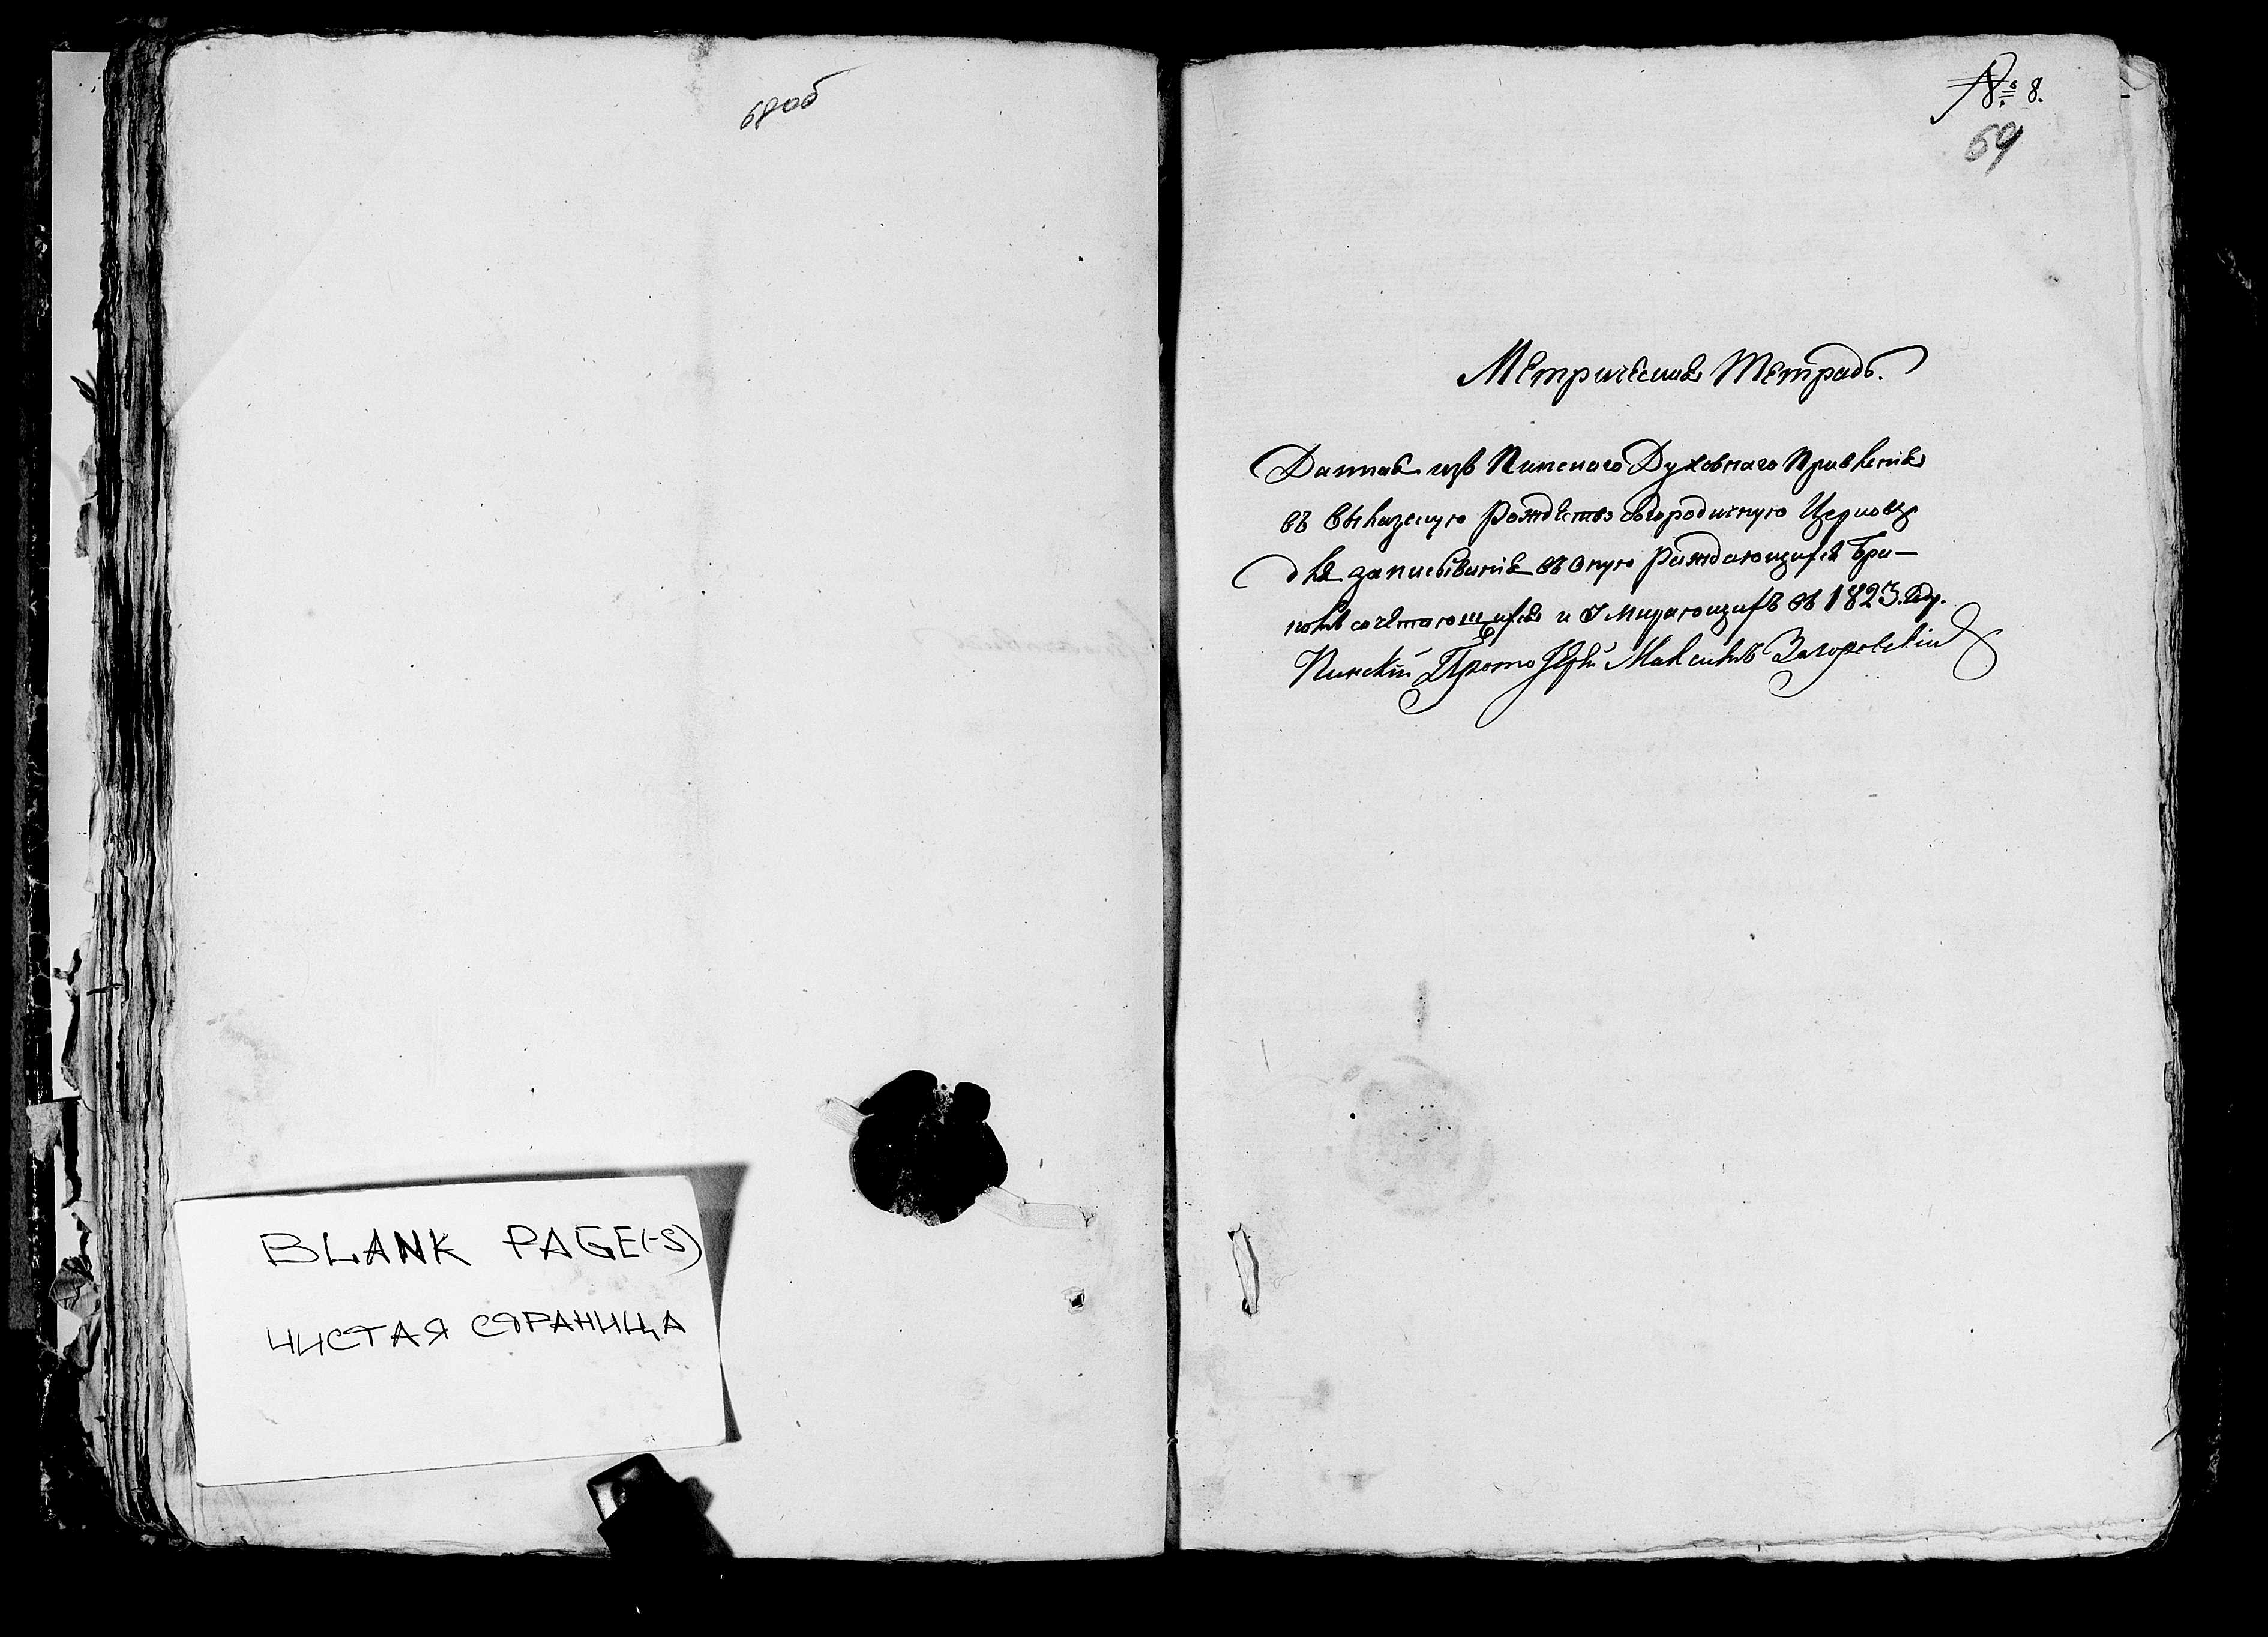 68об
BLANK PAGE(-S)
ЧИСТАЯ СТРАНИЦА
№ 8.
69
Метрическая Тетрадь.
Данная изъ Пинскаго Духовнаго Правленія
въ Рождество Богородичную Церковь
для записыванія въ оную Раждающихся Бра-
комъ сочетающихся и Умирающихъ въ 1823. году.
Пинскій Протоіерей Максимъ Загоровскій